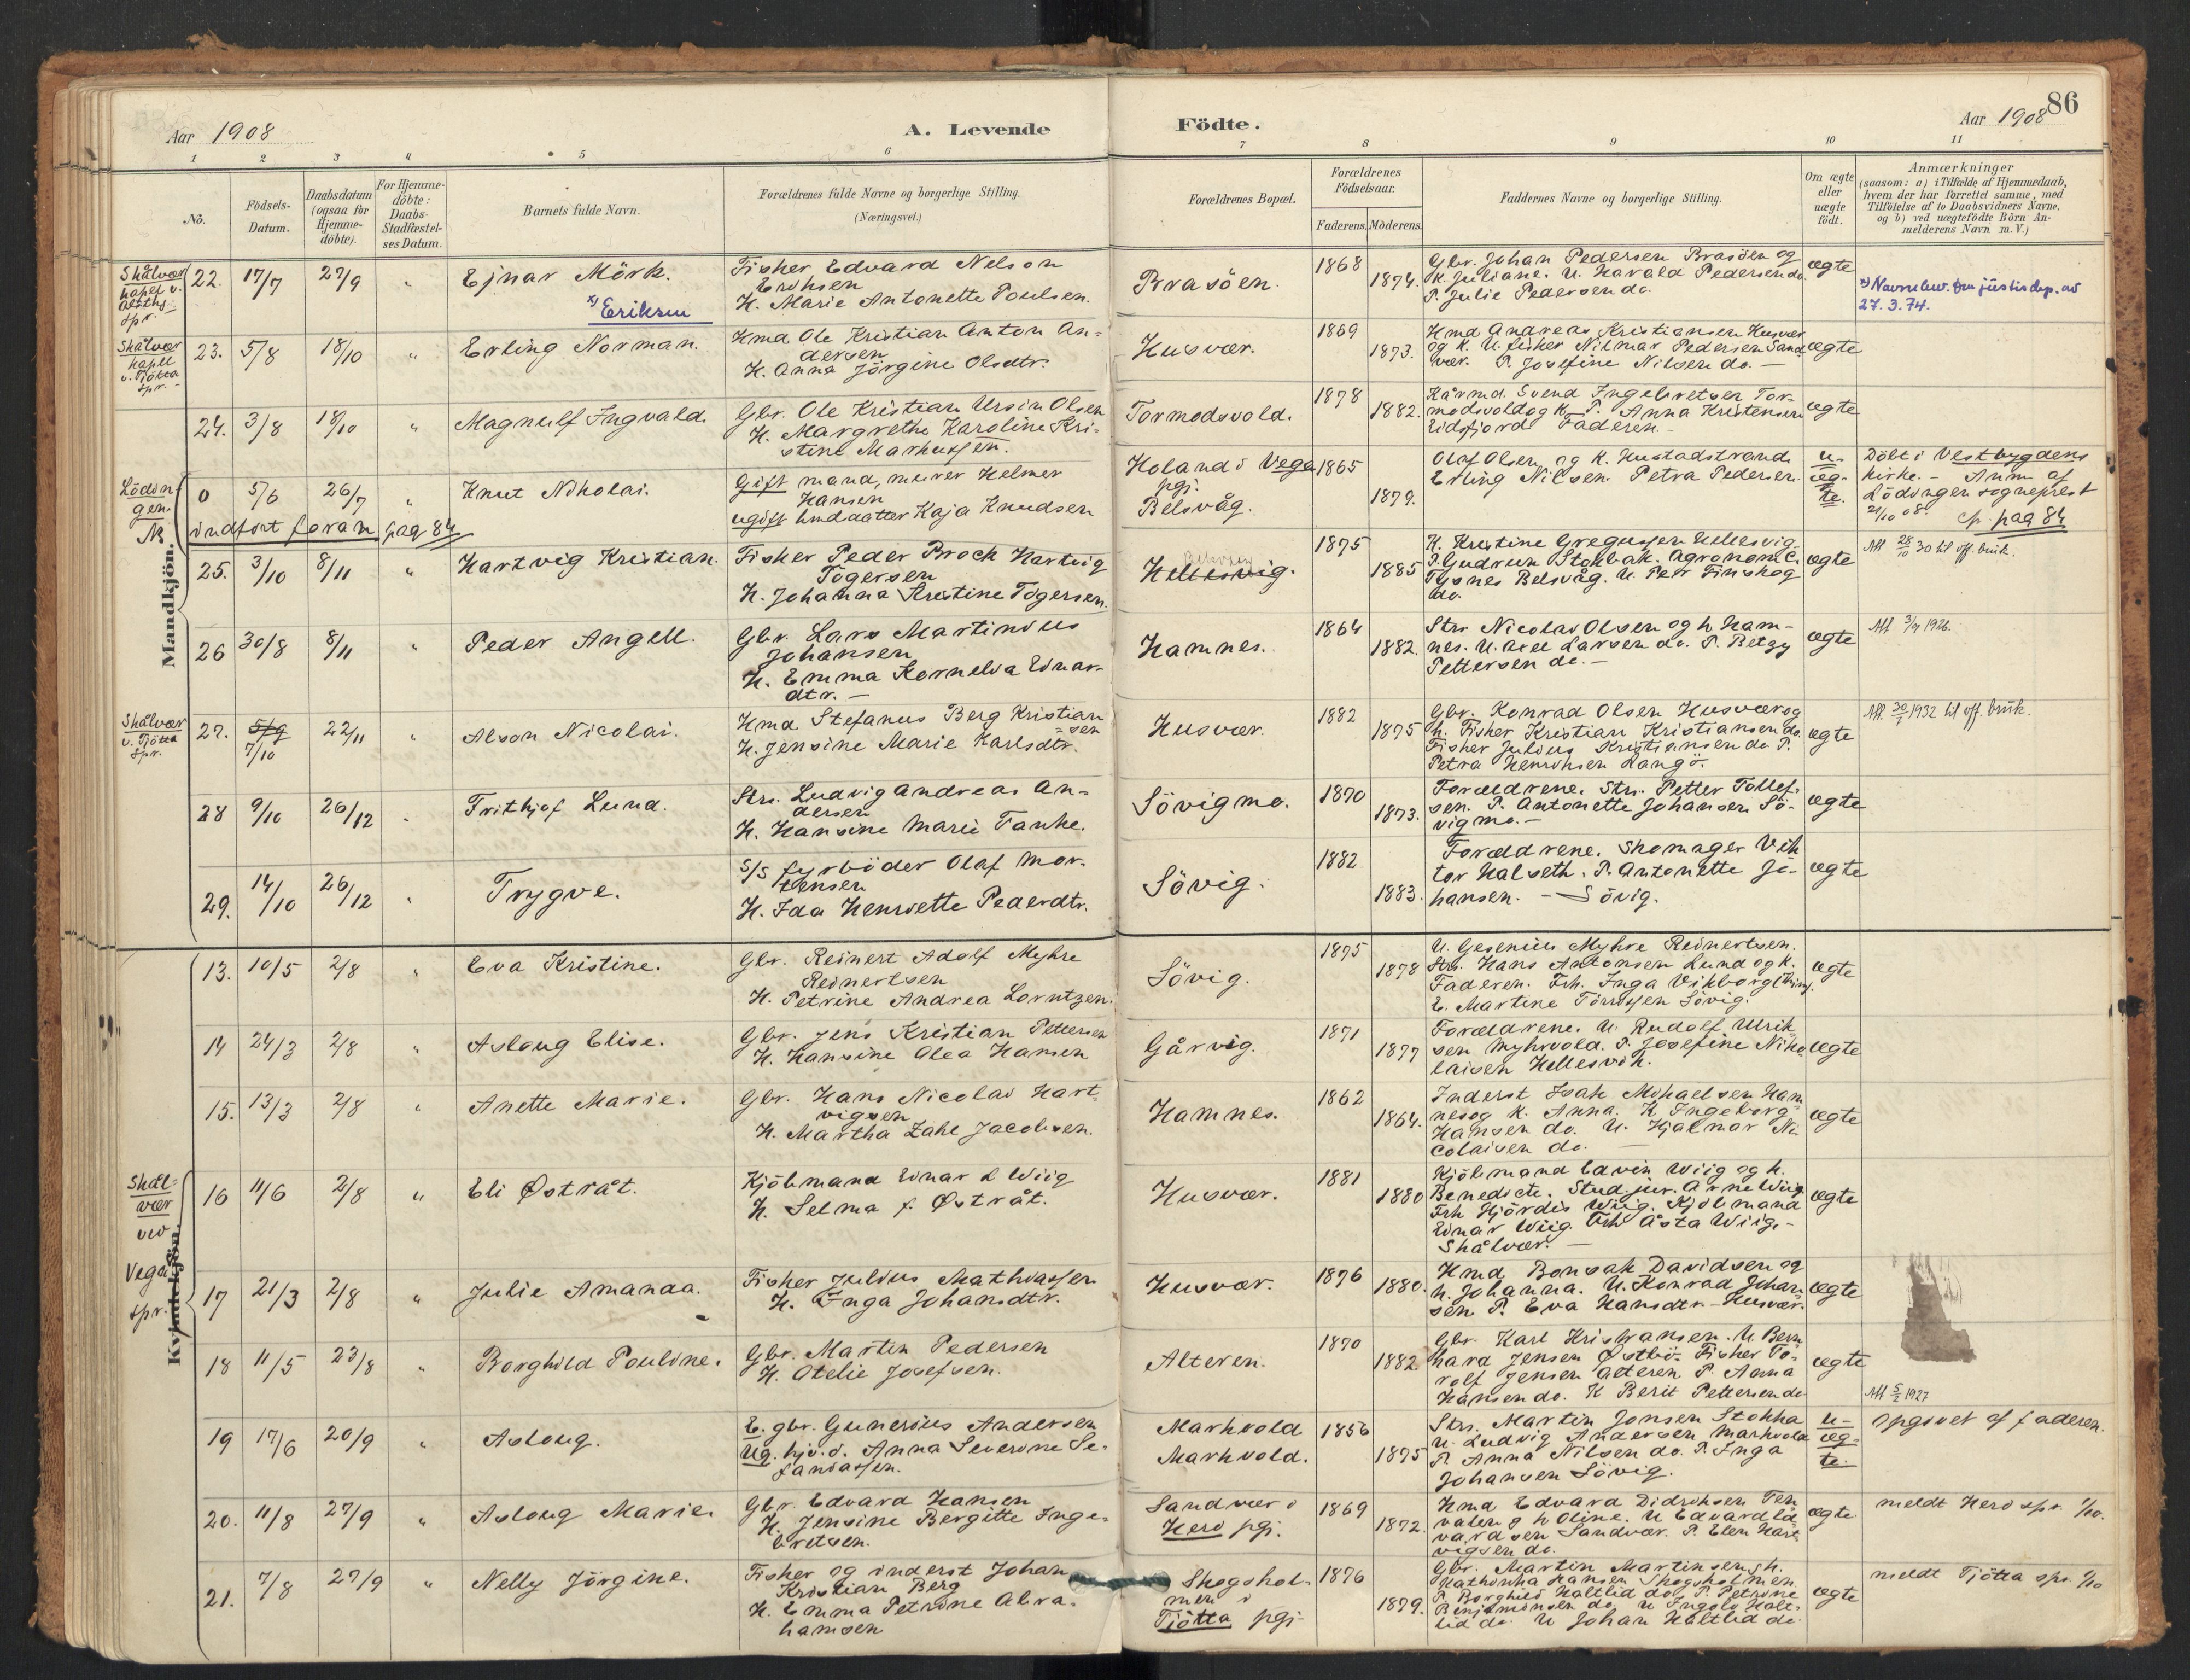 86
Aar 1908
A. Levende
Födte.
Aar 1908
1 2 3 4 5 6 7 8 9 10 11
No.
Födsels-
Datum.
Daabsdatum
(ogsaa for
Hjemme-
döbte).
For Hjemme-
döbte:
Daabs-
Stadfæstel-
ses Datum.
Barnets fulde Navn.
Forældrenes fulde Navne og borgerlige Stilling.
(Næringsvei.)
Forældrenes Bopæl.
Forældrenes
Födselsaar.
Faderens. Möderens.
Faddernes Navne og borgerlige Stilling.
Om ægte
eller
uægte
födt.
Anmærkninger
(saasom: a) i Tilfælde af Hjemmedaab,
hvem der har forrettet samme, med
Tilföielse af to Daabsvidners Navne,
og b) ved uægtefödte Börn An-
melderens Navn m. V.)
Mandkjön.
Skålvær
kapel v.
spr.
22. 17/7 27/9 "
Ejnar Mörk.
x) Eriksen
Fisker Edvard Nelson
Eriksen
H. Marie Antonette Poulsen.
Brasöen.
1868
1874.
Gbr. Johan Pedersen Brasöen og
K. Juliane. U. Harald Pedersen do.
P. Julie Pedersen do.
ægte
x) Navnebev. fra justisdep. av
27.3.74.
Skålvær
kapell
v. Tjötta
spr.
23. 5/8 18/10 "
Erling Norman.
Kmd Ole Kristian Anton An-
dersen
H. Anna Jörgine Olsdtr.
Husvær.
1869
1873.
Kmd Andreas Kristiansen Husvær
og K. U. fisker Hilmar Pedersen Sand
vær. P. Josefine Nilsen do. —
ægte
24. 3/8 18/10 "
Magnulf Ingvald.
Gbr. Ole Kristian Ursin Olsen
H. Margrethe Karoline Kri-
stine Markussen.
Tormodsvold.
1878
1882.
Kårmd. Svend Ingebretsen Tor-
modsvold og K. P. Anna Kristensen
Eidsfjord Faderen. —
ægte
Lödin
gen.
0 5/6 26/7 "
Knut Nikolai.
indfört foran pag 84
Gift mand, murer Helmer
Hansen
ugift kmddatter Kaja Knudsen
Holand i Vega
pgj.
Belsvåg.
1865
1879.
Olaf Olsen og K. Hustadstrand
Erling Nilsen. Petra Pedersen.
u-
æg-
te.
Döbt i Vestbygdens
kirke. — Anm af
Lödingen sogneprest
21/10 08. cfr. pag 84
25. 3/10 8/11 "
Hartvig Kristian.
Fisker Peder Brock Hartvig
Togersen
H. Johanna Kristine Togersen.
Belsvåg
Hellesvig.
1875
1885
K. Kristine Gregussen Hellesvig
P. Gudrun Stokbak. Agronom C.
Tysnes Belsvåg. U. Petr Finskog
do.
ægte
Att 28/10 30 til off. bruk.
26 30/8 8/11 "
Peder Angell.
Gbr. Lars Martinius
Johansen
H. Emma Kornelia Einar-
dtr. —
Hamnes.
1864
1882.
Strs Nicolai Olsen og h Ham-
nes. U. Axel Larsen do. P. Betzy
Pettersen do. —
ægte
Att 3/9 1926.
Skålvær
v. Tjötta
spr.
27. 5/9
7/10
22/11 "
Alson Nicolai.
Kmd. Stefanus Berg Kristian
sen
H. Jensine Marie Karlsdtr.
Husvær.
1882
1875
Gbr. Konrad Olsen Husvær og
h. Fisker Kristian Kristiansen do.
Fisker Julius Kristiansen do P.
Petra Henriksen Langö.
ægte
Att. 1932 til off. bruk.
28 9/10 26/12 "
Frithjof Lund.
Strs. Ludvig Andreas An-
dersen
H. Hansine Marie Fanke.
Sövigmo.
1870
1873.
Forældrene. Strs. Petter Tollef-
sen. P. Antonette Johansen Sö-
vigmo. —
ægte
29. 14/10 26/12 "
Trygve.
S/S fyrböder Olaf Mor-
tensen
H. Ida Henriette Pederdtr.
Sövig.
1882
1883.
Forældrene. Skomager Vik
tor Halseth. P. Antonette Jo-
hansen. — Sövig.
ægte
Kvindekjön.
13. 10/5 2/8 "
Eva Kristine.
Gbr. Reinert Adolf Myhre
Reinertsen
H. Petrine Andrea Lorntzen.
Sövig.
1875
1878
U. Gesenius Myhre Reinertsen.
Strs. Hans Antonsen Lund og K.
Faderen. Frk. Inga Vikborg
E. Martine Törrissen Sövig.
ægte
14 24/3 2/8 "
Aslaug Elise.
Gbr. Jens Kristian Pettersen
H. Hansine Olea Hansen
Gårvig.
1871
1877
Forældrene. U. Rudolf Ulrik-
sen Myhrvold. P. Josefine Niko
laisen Hellesvik.
ægte
15. 13/3 2/8 "
Anette Marie.
Gbr. Hans Nicolai Hart-
vigsen
H. Martha Zahl Jacobsen.
Hamnes.
1862
1864.
Inderst Isak Mikaelsen Ham
nes og K. Anna. K Ingeborg
Hansen do. U. Hjalmar Ni-
colaisen do. —
ægte
Skål-
vær
ved
Vega
spr.
16 11/6 2/8 "
Eli Østråt.
Kjöbmand Einar L Wiig
H. Selma f. Østråt.
Husvær.
1881
1880
Kjöbmand Edvin Wiig og h.
Benedicte. Stud. jur. Arne Wiig
Frk Hjördis Wiig. Kjöbmand
Einar Wiig. Frk Åsta Wiig. -
Skålvær. —
ægte
17 21/3 2/8 "
Julie Amanda.
Fisker Julius Mathiassen
H. Inga Johansdtr.
Husvær.
1876
1880.
Kmd. Bonsak Davidsen og
h. Johanna. U. Konrad Johan-
sen. P. Eva Hansdtr. - Husvær.
ægte
18 11/5 23/8 "
Borghild Pouline.
Gbr. Martin Pedersen
H. Otelie Josefsen.
Alteren.
1870
1882.
Gbr. Karl Kristiansen. U. Bern
hard Jensen Østbö. Fisker To-
rolf Jensen Alteren. P. Anna
Hansen do. K Berit Pettersen do
ægte
Att 5/2 1927
19 17/6 20/9 "
Aslaug.
E. gbr. Gunerius Andersen
Ug. hjv. d. Anna Severine Se-
faniassen.
Markvold
Markvold.
1856
1875
Strs. Martin Jonsen Stokka
U. Ludvig Andersen Markvold
P. Anna Nilsen do. P. Inga
Johansen Sövig.
u-
æg-
te.
Opgivet af faderen.
20. 11/8 27/9 "
Aslaug Marie.
Gbr. Edvard Hansen
H. Jensine Bergitte Inge-
bretsen.
Sandvær i
Herö pgj.
1869
1872.
Kmd Edvard Didriksen Ten
valen og h Oline. U Edvard Ed-
vardsen Sandvær. P. Elen Hart
vigsen do.
ægte.
meldt Herö spr. 1/10.
21. 7/8 27/9 "
Nelly Jörgine.
Fisker og inderst Johan
Kristian Berg
H. Emma Petrine Abra-
hamsen
Skogshol-
men i
Tjötta pgj-
1876
1879.
Gbr. Martin Martinsens h.
Kathinka Hansen Skogsholmen
P. Borghild Haltlid do. P. Petrine
Benjaminsen do. U Ingolv Halt-
lid do. U Johan Haltlid do
ægte
meldt Tjötta spr. 1/10